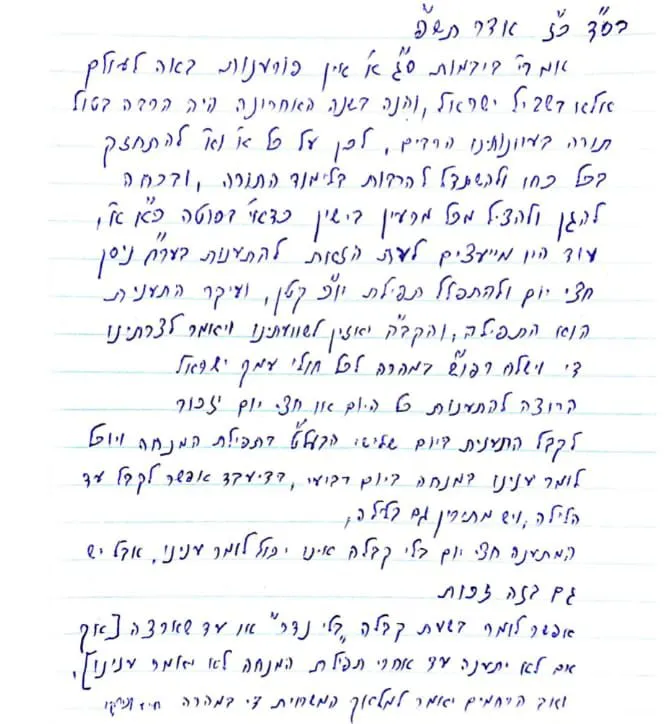 בס״ד כ״ז אדר תש״פ
אמרי׳ ביבמות ס״ג א׳ אין פורענות באה לעולם
אלא בשביל ישראל, והנה בשנה האחרונה היה הרבה בטול
תורה בעוונותינו הרבים, לכן על כל או״א להתחזק
בכל כחו ולהשתדל להרבות בלימוד התורה, ובכחה
להגן ולהציל מכל מרעין בישין כדאי׳ בסוטה כ״א א׳,
עוד היו מייעצים לעת הזאת להתענות בער״ח ניסן
חצי יום ולהתפלל תפילת יו״כ קטן, ועיקר התענית
הוא התפילה, והקב״ה יאזין לשוועתינו ויאמר לצרתינו
די וישלח רפו״ש במהרה לכל חולי עמך ישראל
הרוצה להתענות כל היום או חצי יום יזכור
לקבל התענית ביום שלישי הבעל״ט בתפילת המנחה ויוכל
לומר ענינו במנחה ביום רביעי, בדיעבד אפשר לקבל עד
הלילה, ויש מתירין גם בלילה,
המתענה חצי יום בלי קבלה אינו יכול לומר ענינו, אבל יש
גם בזה זכות
אפשר לומר בשעת קבלה ״בלי נדר״ או עד שארצה [אך
אם לא יתענה עד אחרי תפילת המנחה לא יאמר ענינו],
ואב הרחמים יאמר למלאך המשחית די במהרה